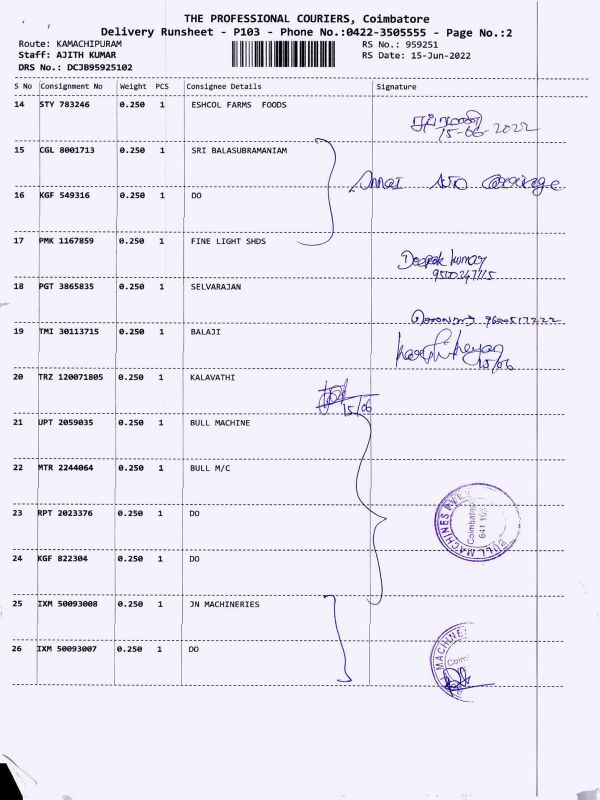 THE PROFESSIONAL COURIERS, Coimbatore
Delivery Runsheet - P103 - Phone No.:0422-3505555 - Page No.:2
Route: KAMACHIPURAM RS No.: 959251
Staff: AJITH KUMAR RS Date: 15-Jun-2022
DRS No.: DCJB95925102
S No Consignment No Weight PCS Consignee Details Signature
14 STY 783246 0.250 1 ESHCOL FARMS FOODS
15-06-2022
15 CGL 8001713 0.250 1 SRI BALASUBRAMANIAM
16 KGF 549316 0.250 1 DO
17 PMK 1167859 0.250 1 FINE LIGHT SHDS
Deepak kumar
18 PGT 3865835 0.250 1 SELVARAJAN
9600517222
19 TMI 30113715 0.250 1 BALAJI
15/06
20 TRZ 120071805 0.250 1 KALAVATHI
15/06
21 UPT 2059035 0.250 1 BULL MACHINE
22 MTR 2244064 0.250 1 BULL M/C
23 RPT 2023376 0.250 1 DO
BULL MACHINES
Coimbatore
24 KGF 822304 0.250 1 DO
25 IXM 50093008 0.250 1 JN MACHINERIES
26 IXM 50093007 0.250 1 DO